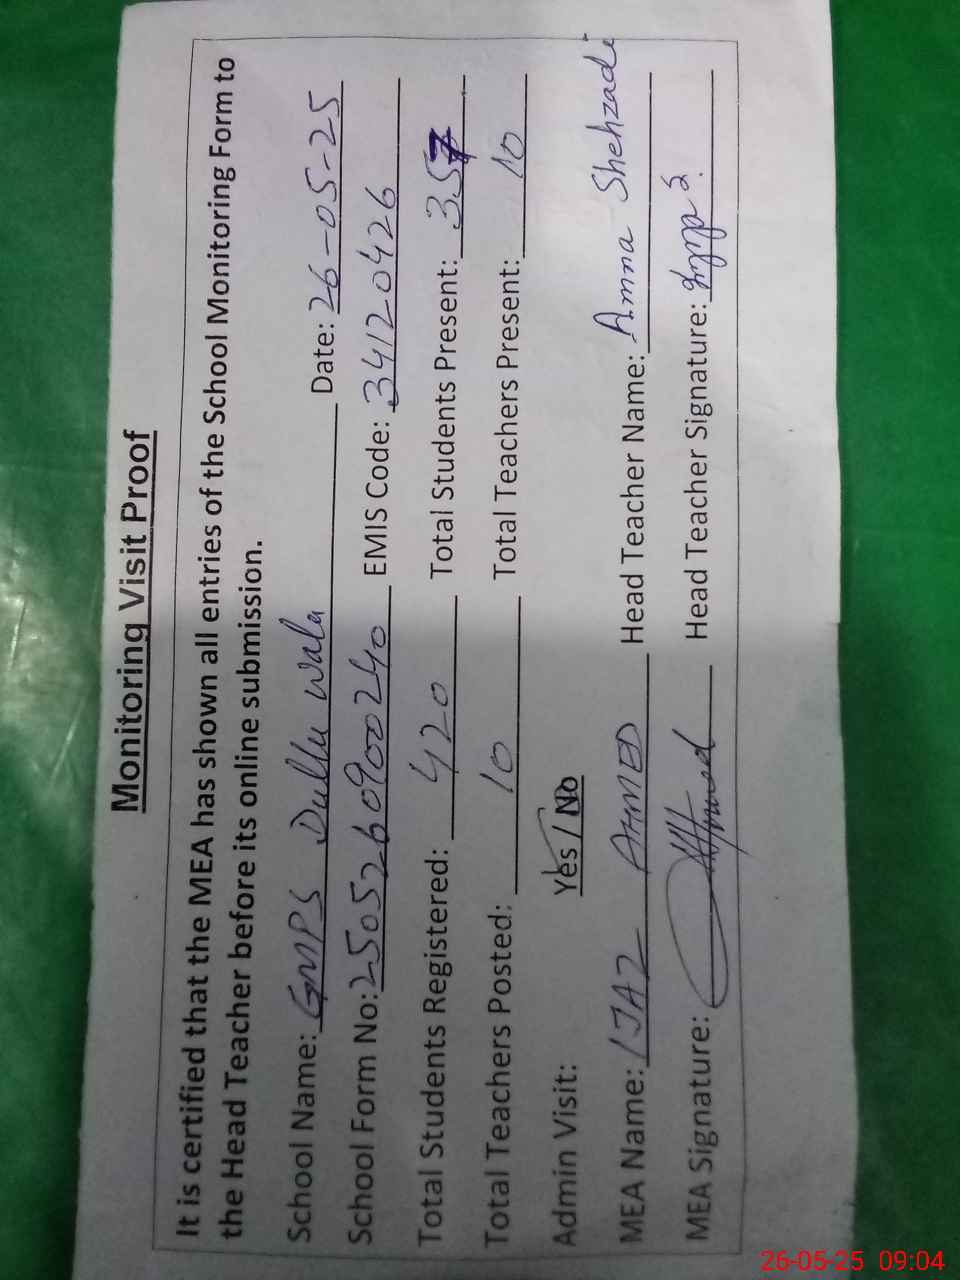 Monitoring Visit Proof
It is certified that the MEA has shown all entries of the School Monitoring Form to
the Head Teacher before its online submission.
School Name: GMPS Dullu Wala Date: 26-05-25
School Form No: 2505260900240 EMIS Code: 34120426
Total Students Registered: 420 Total Students Present: 357
Total Teachers Posted: 10 Total Teachers Present: 10
Admin Visit: Yes / No
MEA Name: IJAZ AHMED Head Teacher Name: Amna Shehzadi
MEA Signature: Head Teacher Signature:
26-05-25 09:04